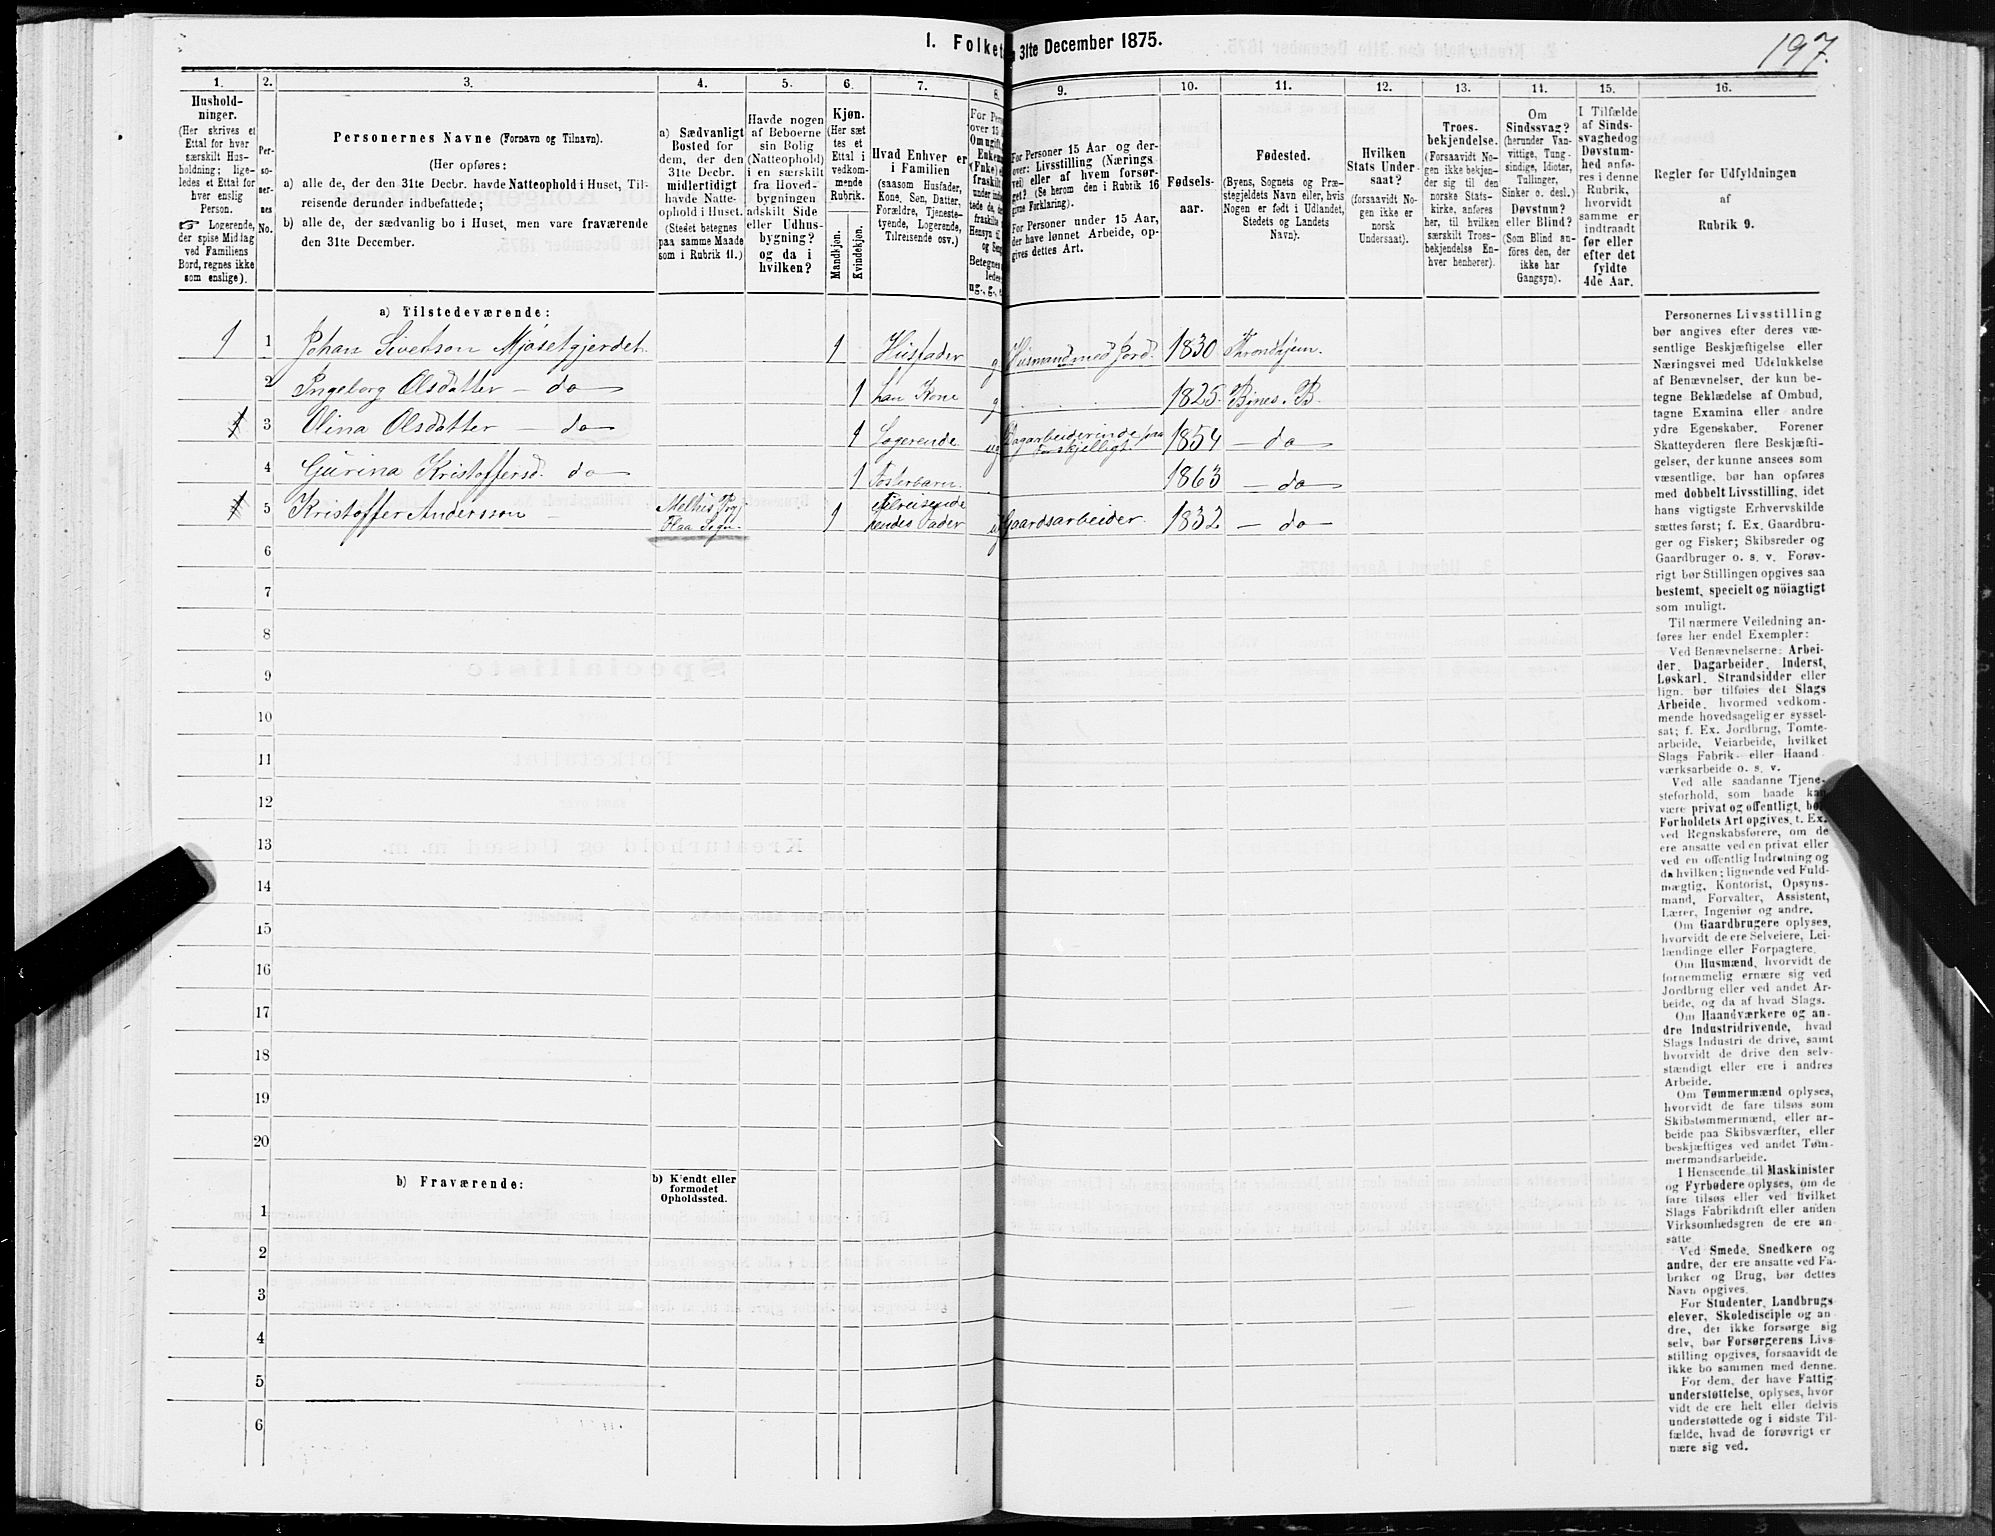 197.
1. Folket
31te December 1875.
1. 2. 3. 4. 5. 6. 7. 8. 9. 10. 11. 12. 13. 14. 15. 16.
Hushold-
ninger.
(Her skrives et
Ettal for hver
særskilt Hus-
holdning; lige-
ledes et Ettal for
hver enslig
Person.
☞ Logerende,
der spise Middag
ved Familiens
Bord, regnes ikke
som enslige).
Per-
so-
ner-
nes
No.
Personernes Navne (Fornavn og Tilnavn).
(Her opføres:
a) alle de, der den 31te Decbr. havde Natteophold i Huset, Til-
reisende derunder indbefattede;
b) alle de, der sædvanlig bo i Huset, men vare fraværende
den 31te December.
a) Sædvanligt
Bosted for
dem, der den
31te Decbr.
midlertidigt
havde Natte-
ophold i Huset.
(Stedet betegnes
paa samme Maade
som i Rubrik 11.)
Havde nogen
af Beboerne
sin Bolig
(Natteophold)
i en særskilt
fra Hoved-
bygningen
adskilt Side
eller Udhus-
bygning?
og da i
hvilken?
Kjøn.
(Her sæt
tes et
Ettal i
vedkom-
mende
Rubrik.
Mandkjøn.
Kvindekjøn.
Hvad Enhver er
i Familien
(saasom Husfader,
Kone, Søn, Datter,
Forældre, Tjeneste-
tyende, Logerende,
Tilreisende osv.)
For Personer 15 Aar og der-
over: Livsstilling (Nærings
vei) eller af hvem forsør-
get? (Se herom den i Rubrik 16
givne Forklaring).
For Personer under 15 Aar,
der have lønnet Arbeide, op-
gives dettes Art.
Fødsels-
aar.
Fødested.
(Byens, Sognets og Præ-
stegjeldets Navn eller, hvis
Nogen er født i Udlandet,
Stedets og Landets
Navn).
Hvilken
Stats Under-
saat?
(forsaavidt No-
gen ikke er
norsk
Undersaat).
Troes-
bekjendelse.
(Forsaavidt No-
gen ikke bekjen-
der sig til den
norske Stats-
kirke, anføres
her, til hvilken
særskilt Troes-
bekjendelse En-
hver henhører).
Om
Sindssvag?
(herunder Van-
vittige, Tung-
sindige, Idioter,
Tullinger,
Sinker o. desl.)
Døvstum?
eller Blind?
(Som Blind an-
føres den, der
ikke har
Gangsyn).
I Tilfælde
af Sinds-
svaghed og
Døvstum-
hed anfø-
res i denne
Rubrik,
hvorvidt
samme er
indtraadt
før eller
efter det
fyldte
4de Aar.
Regler for Udfyldningen
af
Rubrik 9.
a) Tilstedeværende:
1 1 Johan Sivertson Mjøsetgjerdet 1 Husfader g Husmand med Jord. 1830 Throndhjem.
2 Ingeborg Olsdatter — do 1 han Kone g 1825. Bynes. B.
1 3 Olina Olsdatter — do 1 Logerende ug Dagarbeiderinde paa
Forskjelligt. 1854 — do
4 Gurina Kristoffersd. do 1 Fosterbarn. 1863 — do
1 5 Kristoffer Andersson — Melhus Pg.
Flaa Sogn. 1 tilreisende
hendes Fader ug Gaardsarbeider. 1832 — do
6
7
8
9
10
11
12
13
14
15
16
17
18
19
20
b) Fraværende:
b) Kjendt eller
formodet
Opholdssted.
1
2
3
4
5
6
Personernes Livsstilling
bør angives efter deres væ-
sentlige Beskjæftigelse eller
Næringsvei med Udelukkelse
af Benævnelser, der kun be-
tegne Beklædelse af Ombud,
tagne Examina eller andre
ydre Egenskaber. Forener
Skatteyderen flere Beskjæfti-
gelser, der kunne ansees som
væsentlige, bør han opføres
med dobbelt Livsstilling, idet
hans vigtigste Erhvervskilde
sættes først; f. Ex. Gaardbru-
ger og Fisker; Skibsreder og
Gaardbruger o. s. v. Forøv-
rigt bør Stillingen opgives saa
bestemt, specielt og nöiagtigt
som muligt.
Til nærmere Veiledning an-
føres her endel Exempler:
Ved Benævnelserne: Arbei-
der, Dagarbeider, Inderst,
Løskarl, Strandsidder eller
lign. bør tilføies det Slags
Arbeide, hvormed vedkom-
mende hovedsagelig er syssel-
sat; f. Ex. Jordbrug, Tomte-
arbeide, Veiarbeide, hvilket
Slags Fabrik- eller Haand
værksarbeide o. s. v.
Ved alle saadanne Tjene-
steforhold, som baade kan
være privat og offentligt, bør
Forholdets Art opgives, t. Ex.
ved Regnskabsførere, om de
ere ansatte ved en privat eller
ved en offentlig Indretning og
da hvilken; lignende ved Fuld-
mægtig, Kontorist, Opsyns-
mand, Forvalter, Assistent,
Lærer, Ingeniør og andre.
Om Gaardbrugere oplyses,
hvorvidt de ere Selveiere, Lei-
lændinge eller Forpagtere.
Om Husmænd, hvorvidt de
fornemmelig ernære sig ved
Jordbrug eller ved andet Ar-
beide, og da af hvad Slags.
Om Haandværkere og an-
dre Industridrivende, hvad
Slags Industri de drive, samt
hvorvidt de drive den selv-
stændigt eller ere i andres
Arbeide.
Om Tømmermænd oplyses,
hvorvidt de fare tilsøs som
Skibstømmermænd, eller ar-
beide paa Skibsværfter, eller
beskjæftiges ved andet Tøm-
mermandsarbeide.
I Henseende til Maskinister
og Fyrbødere oplyses, om de
fare tilsøs eller ved hvilket
Slags Fabrikdrift eller anden
Virksomhedsgren de ere an-
satte.
Ved Smede, Snedkere og
andre, der ere ansatte ved Fa-
briker og Brug, bør dettes
Navn opgives.
For Studenter, Landbrugs
elever, Skoledisciple og an-
dre, der ikke forsørge sig
selv, bør Forsørgerens Livs-
stilling opgives, forsaavidt de
ikke bo sammen med denne.
For dem, der have Fattig-
understøttelse, oplyses, hvor
vidt de ere helt eller delvis
understøttede og i sidste Til-
fælde, hvad de forøvrigt er
nære sig ved.